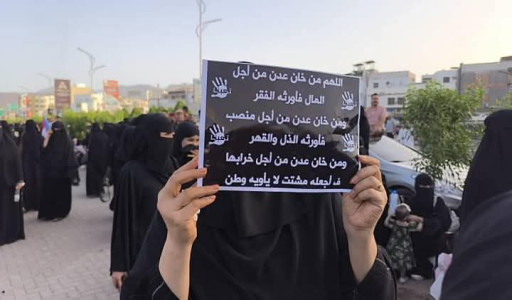 اللهم من خان عدن من أجل
المال فأورثه الفقر
ومن خان عدن من أجل منصب
فأورثه الذل والقهر
ومن خان عدن من أجل خرابها
فـ أجعله مشتت لا يأويه وطن